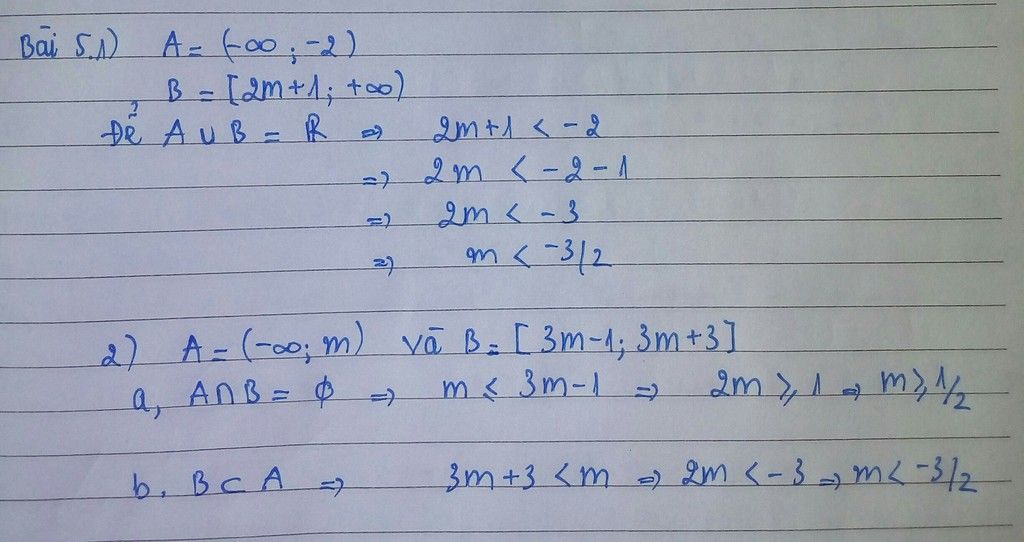 Bài 5.1) A = (-∞; -2)
B = [2m+1; +∞)
Để A ∪ B = ℝ ⇒ 2m+1 < -2
⇒ 2m < -2 -1
⇒ 2m < -3
⇒ m < -3/2
2) A = (-∞; m) và B = [3m-1; 3m+3]
a, A∩B = ϕ ⇒ m ≤ 3m-1 ⇒ 2m ≥ 1 ⇒ m ≥ 1/2
b. B ⊂ A ⇒ 3m+3 < m ⇒ 2m < -3 ⇒ m < -3/2